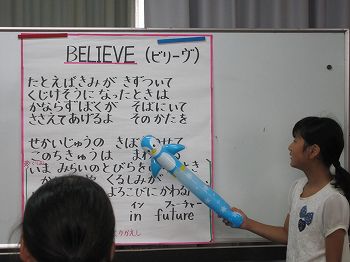 BELIEVE (ビリーヴ)
たとえばきみが きずついて
くじけそうに なったときは
かならずぼくが そばにいて
ささえてあげるよ そのかたを
せかいじゅうの きぼ せて
このちきゅうは まわ
いま みらいの とびらを とき
か や くるしみが
よろこびに かわる
イン フューチャー
in future